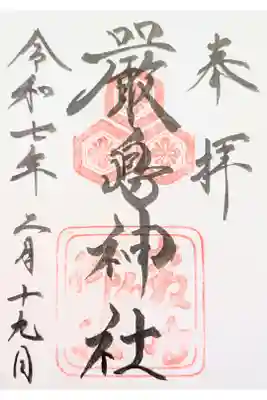 奉拝
嚴島神社
令和七年 二月十九日